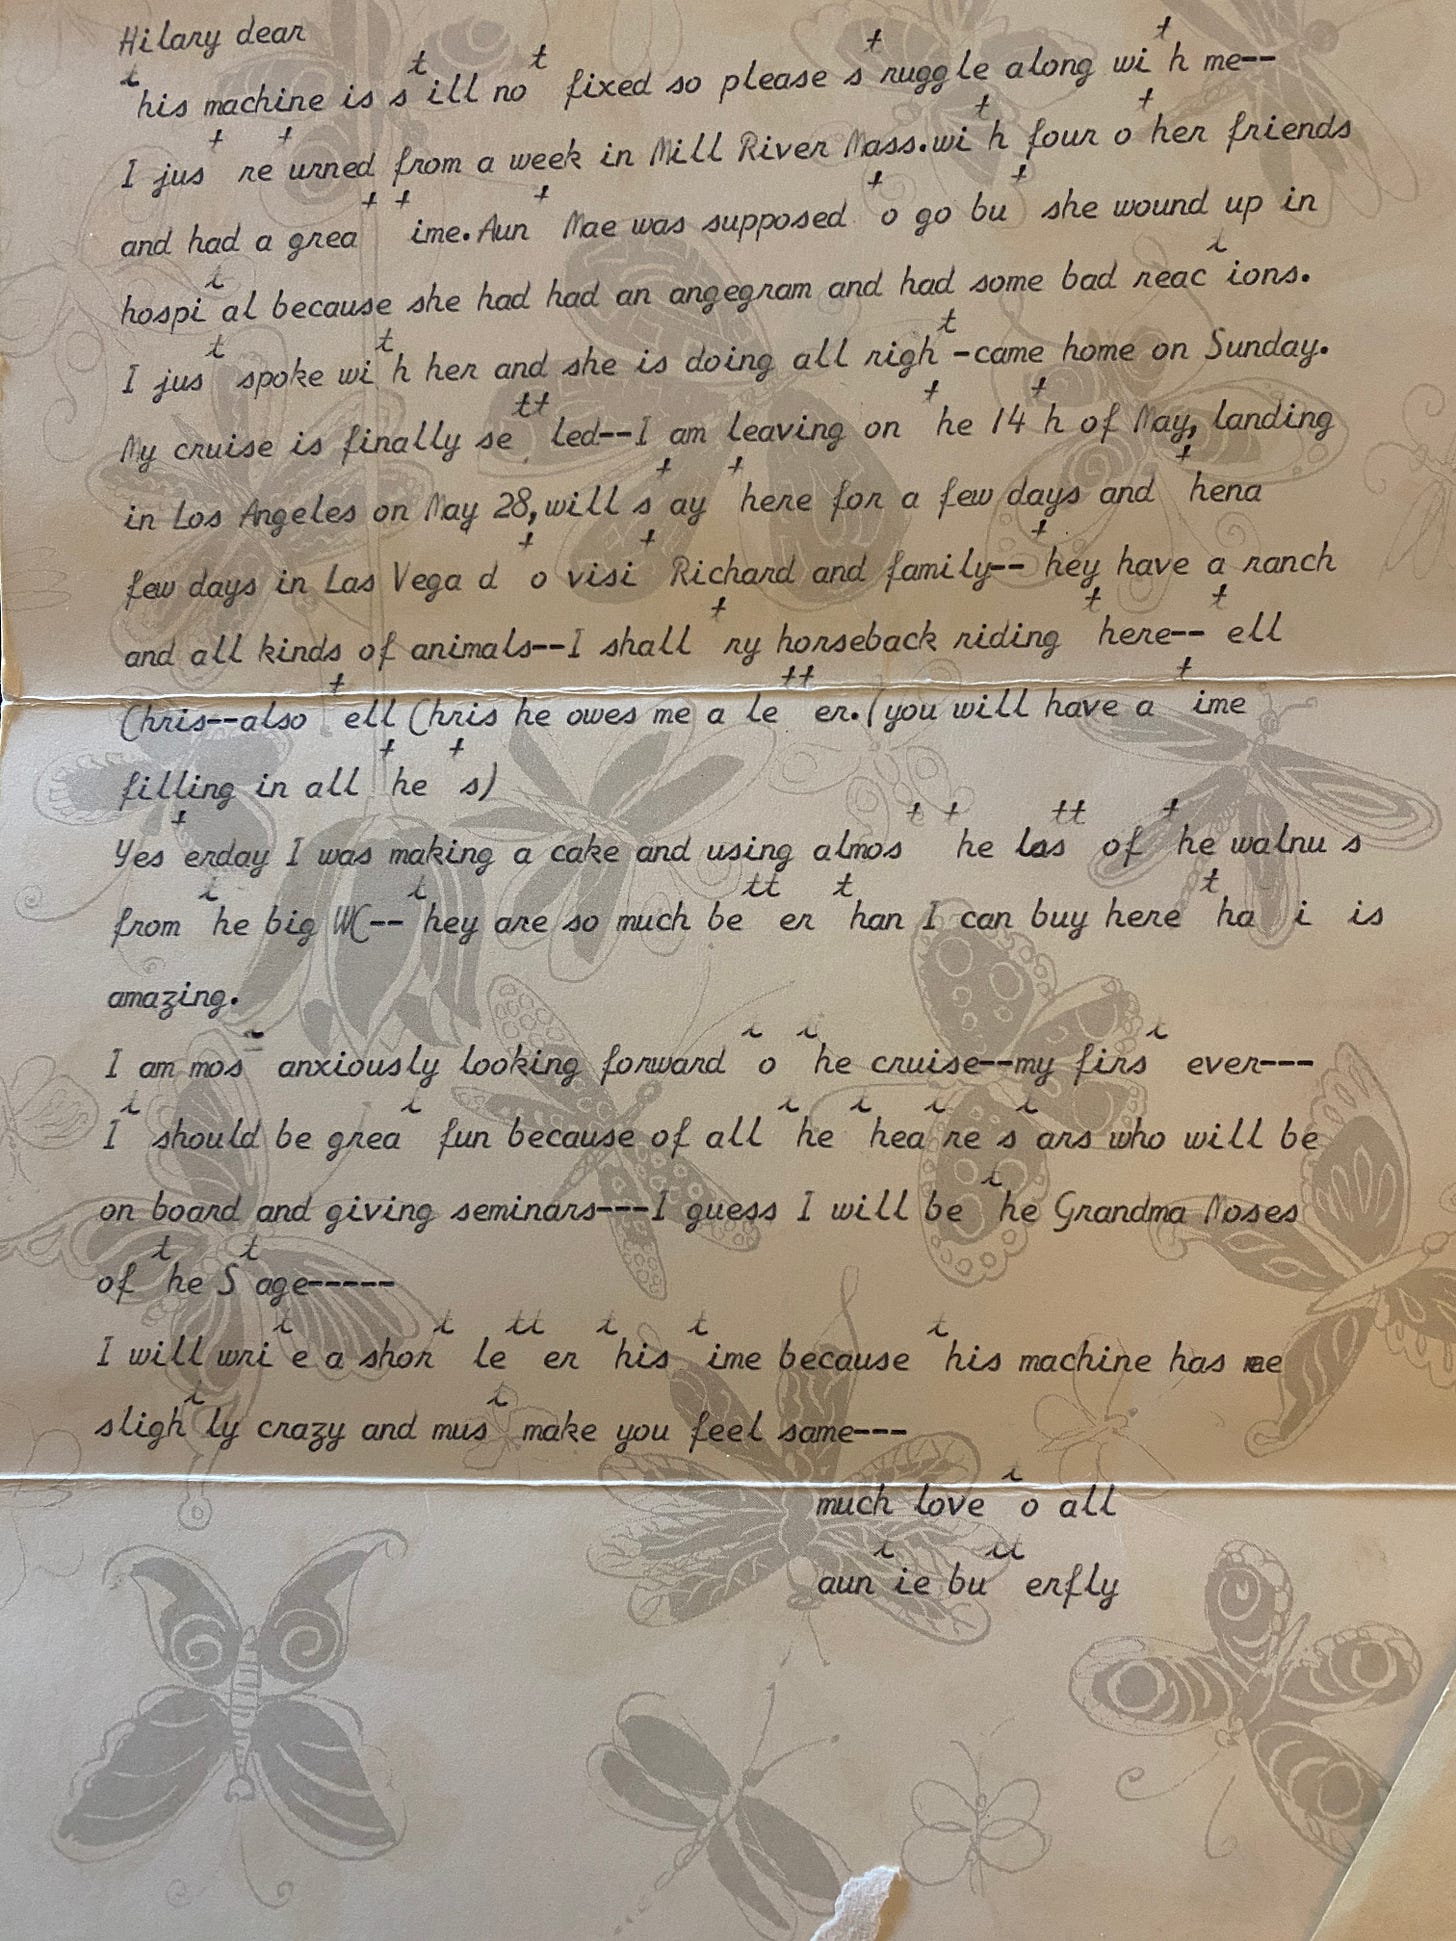 Hilary dear
this machine is still not fixed so please struggle along with me--
I just returned from a week in Mill River Mass.with four other friends
and had a great time.Aunt Mae was supposed to go but she wound up in
hospital because she had had an angegram and had some bad reactions.
I just spoke with her and she is doing all right-came home on Sunday.
My cruise is finally settled--I am leaving on the 14th of May, landing
in Los Angeles on May 28,will stay there for a few days and thena
few days in Las Vega d to visit Richard and family--they have a ranch
and all kinds of animals--I shall try horseback riding there--tell
Chris--also tell Chris he owes me a letter.(you will have a time
filling in all the ts)
Yesterday I was making a cake and using almost the last of the walnu s
from the big WC--they are so much better than I can buy here tha i is
amazing.
I am most anxiously looking forward to the cruise--my first ever---
It should be great fun because of all the theatre stars who will be
on board and giving seminars---I guess I will be the Grandma Moses
of the Stage-----
I will write a short letter this time because this machine has me
slightly crazy and must make you feel same---
much love to all
auntie butterfly